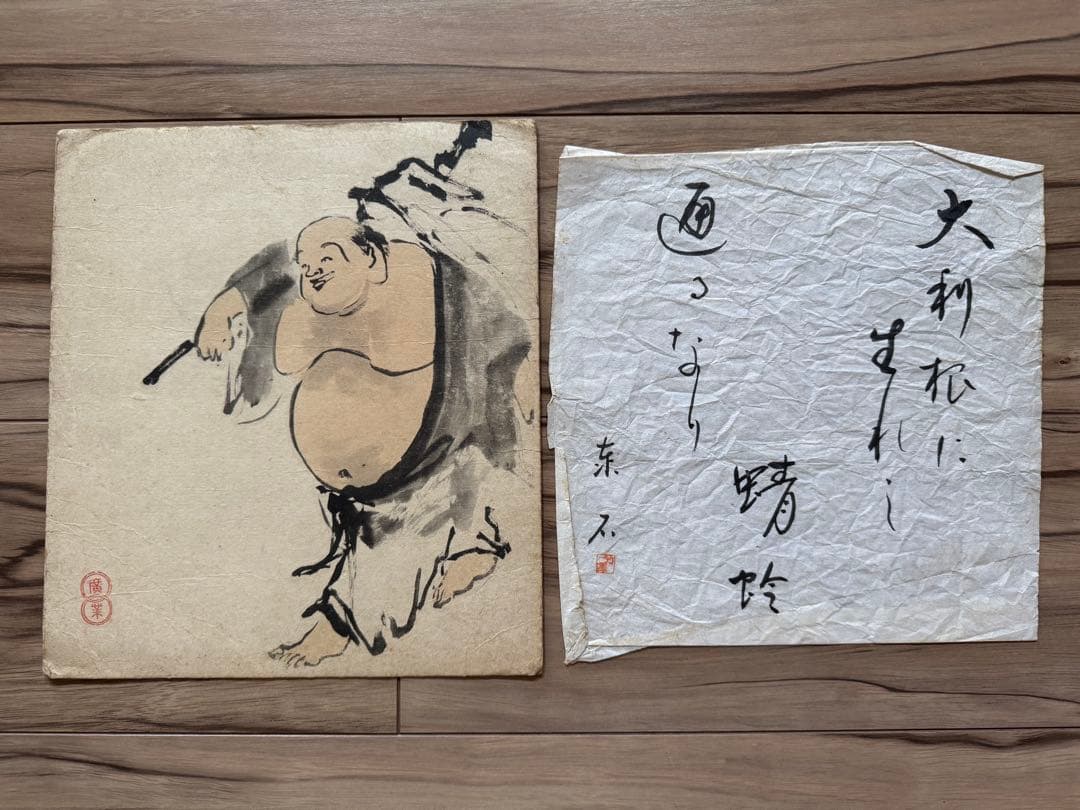 大利根に
生れし
蜻蛉
通るなり
东石
廣業